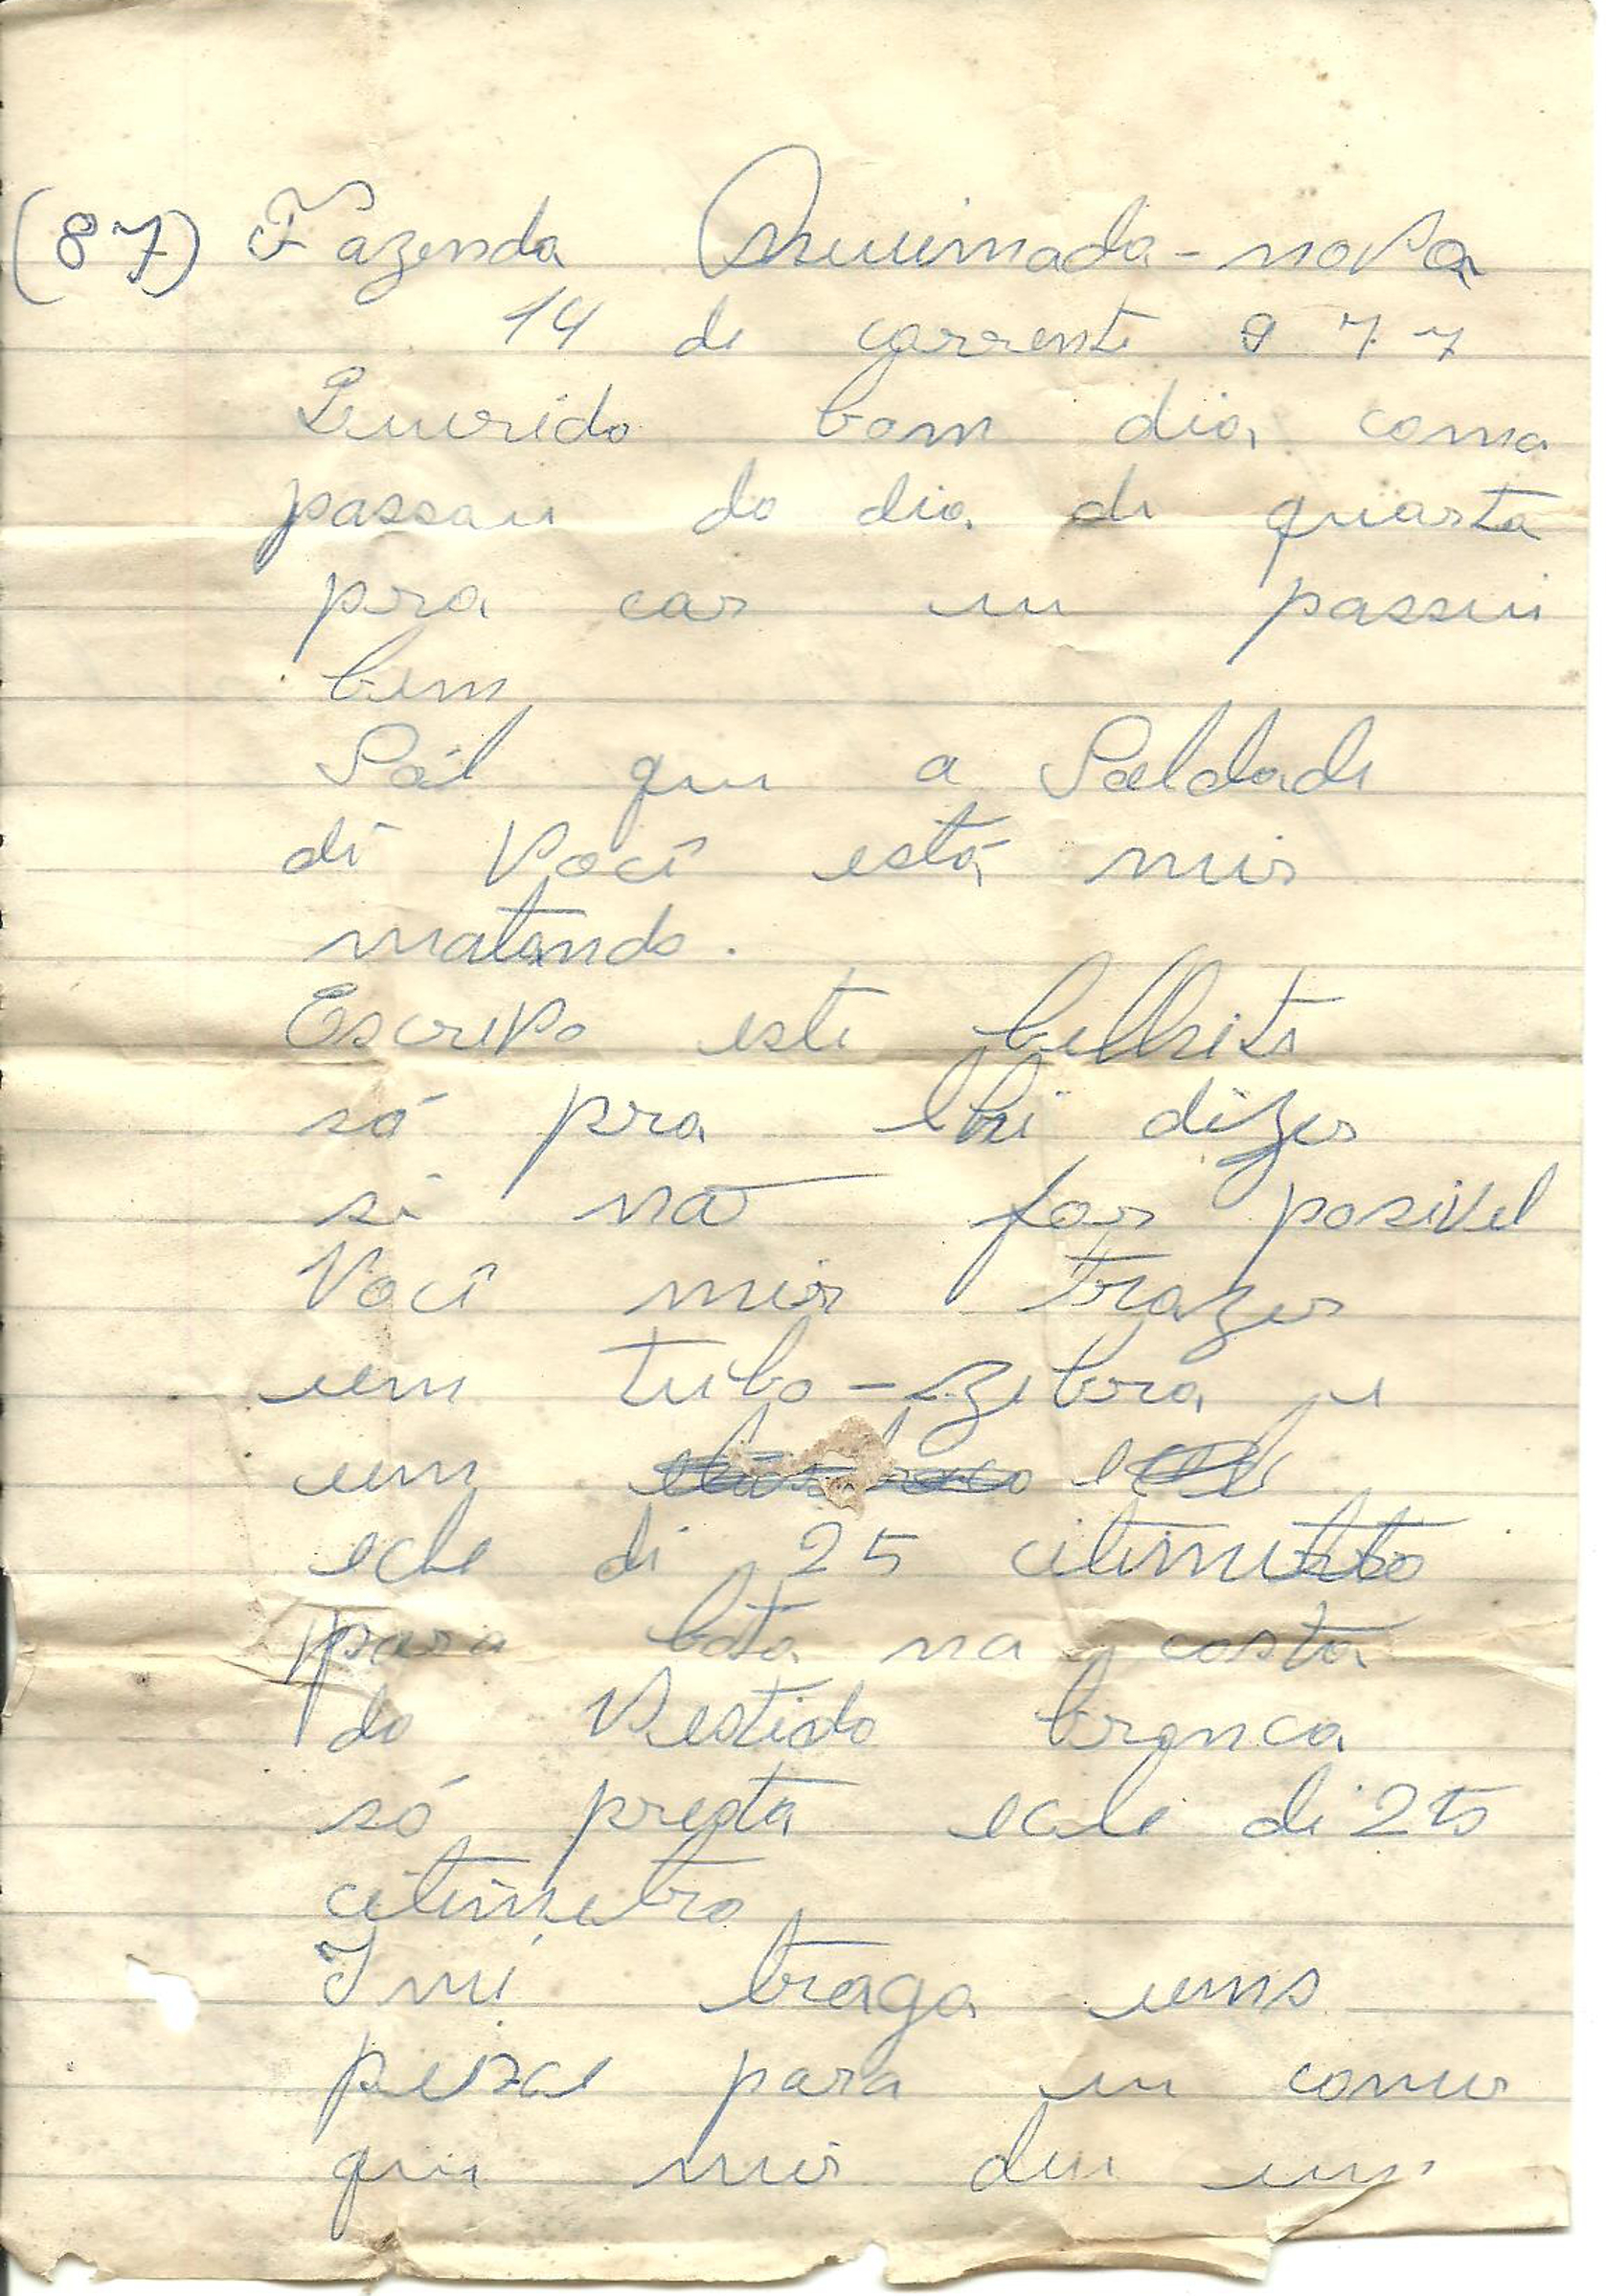 (87) Fazenda Quueimada-nova
14 de correnti 9 7.7
Querido bom dia como
passou do dia di quarta
pra car eu passei
bem
Sól que a Saldade
di Você está mir
matando.
Escrevo este belheite
só pra lhi dizer
si não for posivel
Você mir trazer
um tubo-zebra e
um
ecle di 25 citimetro
para bota na costa
do Vestido branca
só presta ecle di 25
citimetro
I mi traga ums
peixe para eu comer
que mir deu um